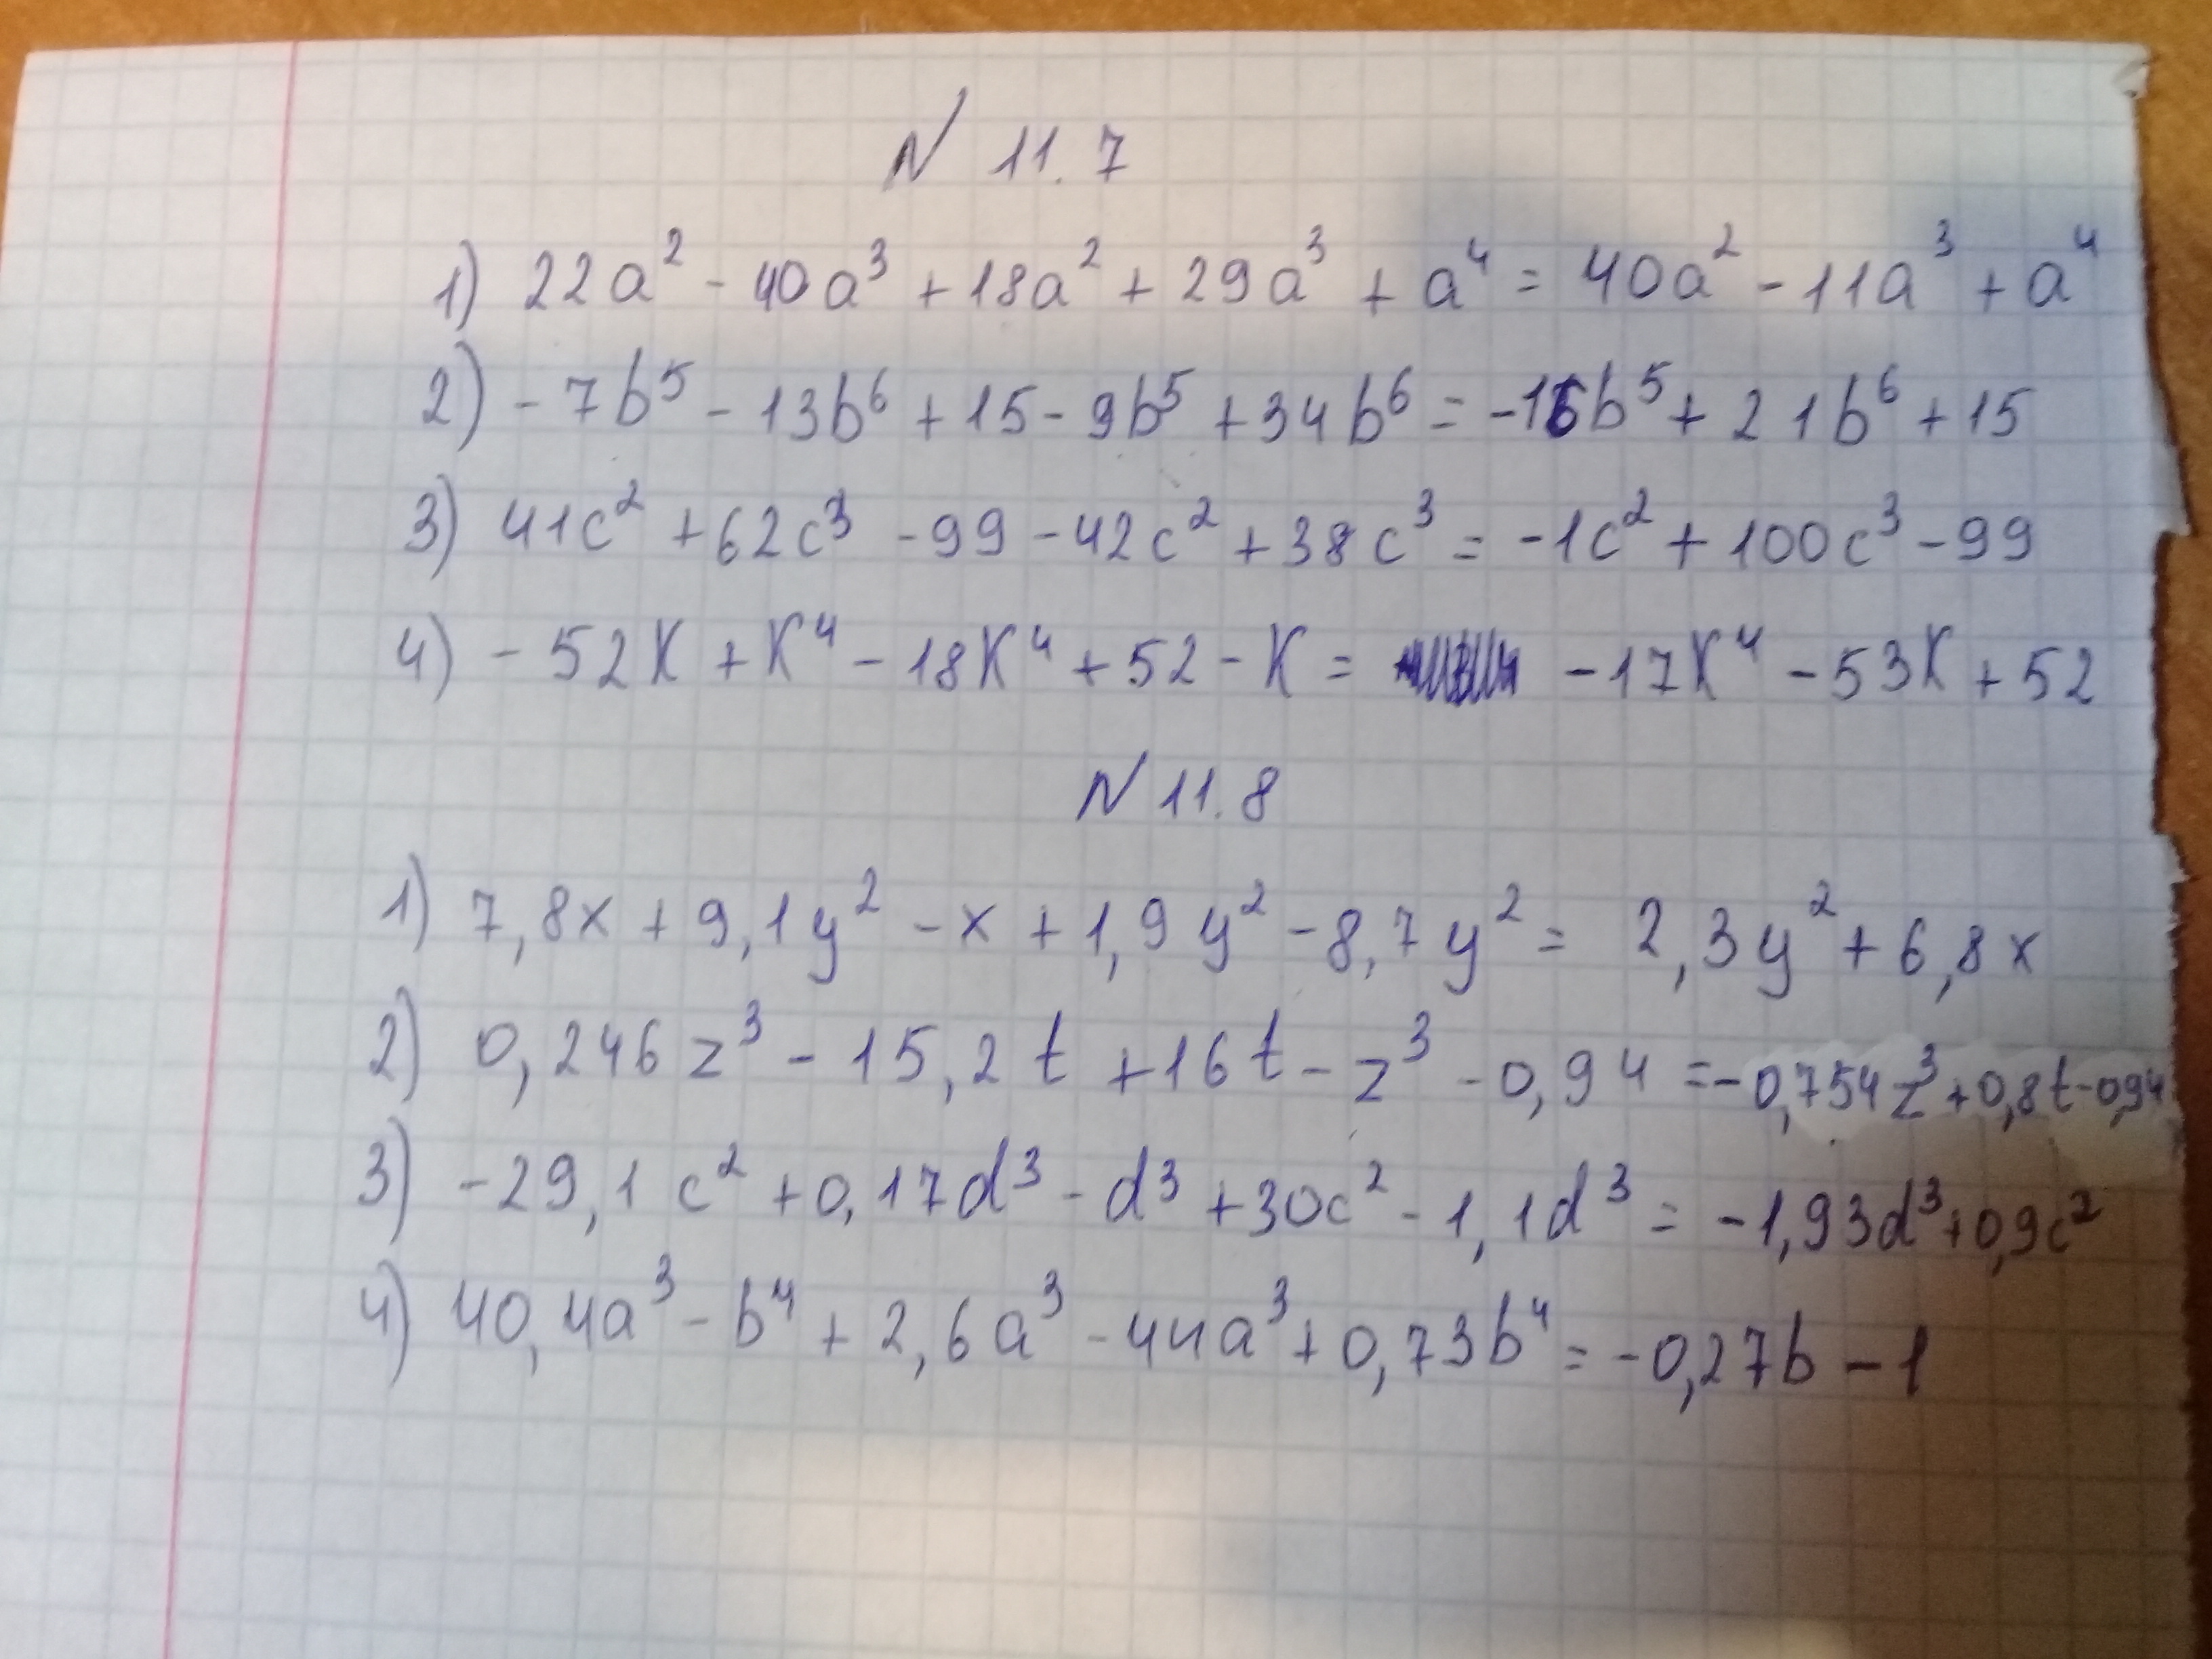 N 11.7
1) 22a² - 40a³ + 18a² + 29a³ + a⁴ = 40a² - 11a³ + a⁴
2) - 7b⁵ - 13b⁶ + 15 - 9b⁵ + 34b⁶ = -16b⁵ + 21b⁶ + 15
3) 41c² + 62c³ - 99 - 42c² + 38c³ = -1c² + 100c³ - 99
4) - 52K + K⁴ - 18K⁴ + 52 - K = - 17K⁴ - 53K + 52
N 11.8
1) 7,8x + 9,1y² - x + 1,9y² - 8,7y² = 2,3y² + 6,8x
2) 0,246z³ - 15,2t + 16t - z³ - 0,94 = -0,754z³ + 0,8t - 0,94
3) - 29,1c² + 0,17d³ - d³ + 30c² - 1,1d³ = -1,93d³ + 0,9c²
4) 40,4a³ - b⁴ + 2,6a³ - 44a³ + 0,73b⁴ = -0,27b - 1